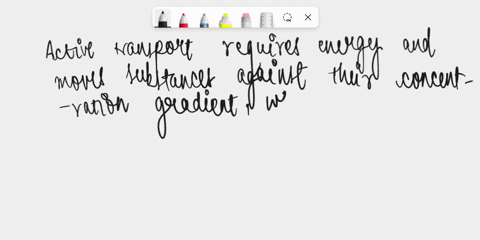 Active transport requires energy and
moves substances against their concent-
-ration gradient, w